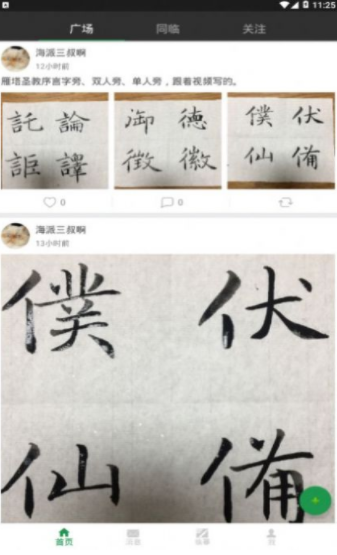 11:25
广场 同临 关注
海派三叔啊
12小时前
雁塔圣教序言字旁、双人旁、单人旁，跟着视频写的。
託 論 御 德 僕 伏
詎 譯 徵 徽 仙 備
0 0
海派三叔啊
13小时前
僕 伏
仙 備
首页 我